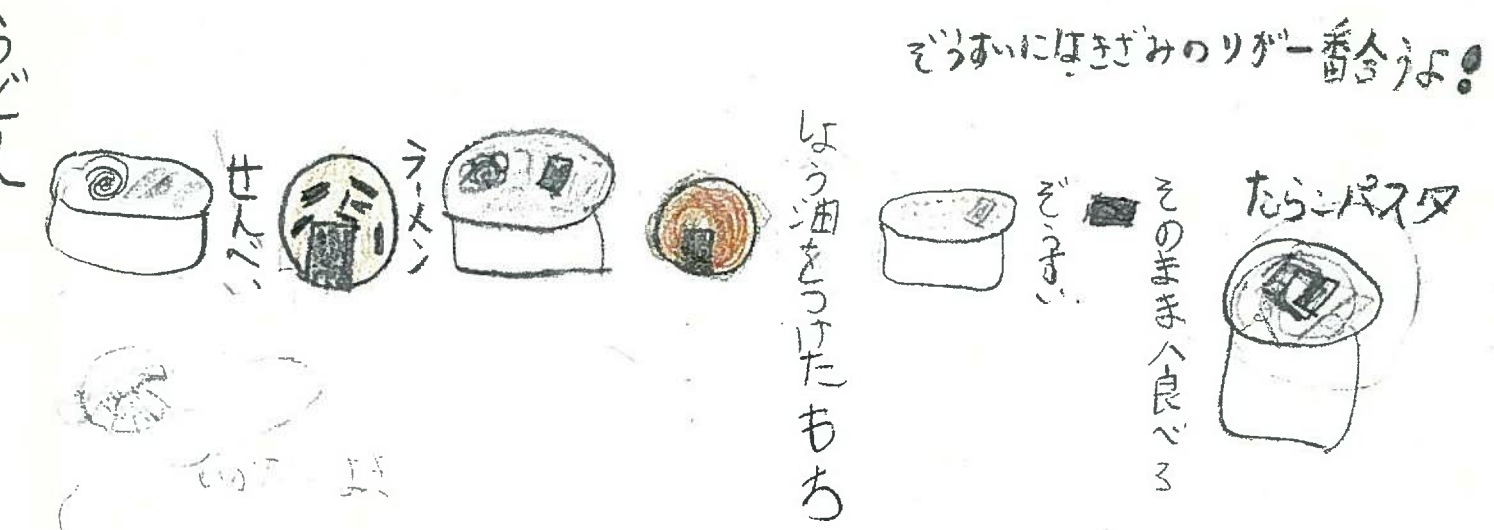 ぞうすいにはきざみのりが一番合うよ!
たらこパスタ
そのまま食べる
ぞうすい
しょう油をつけたもち
ラーメン
せんべい